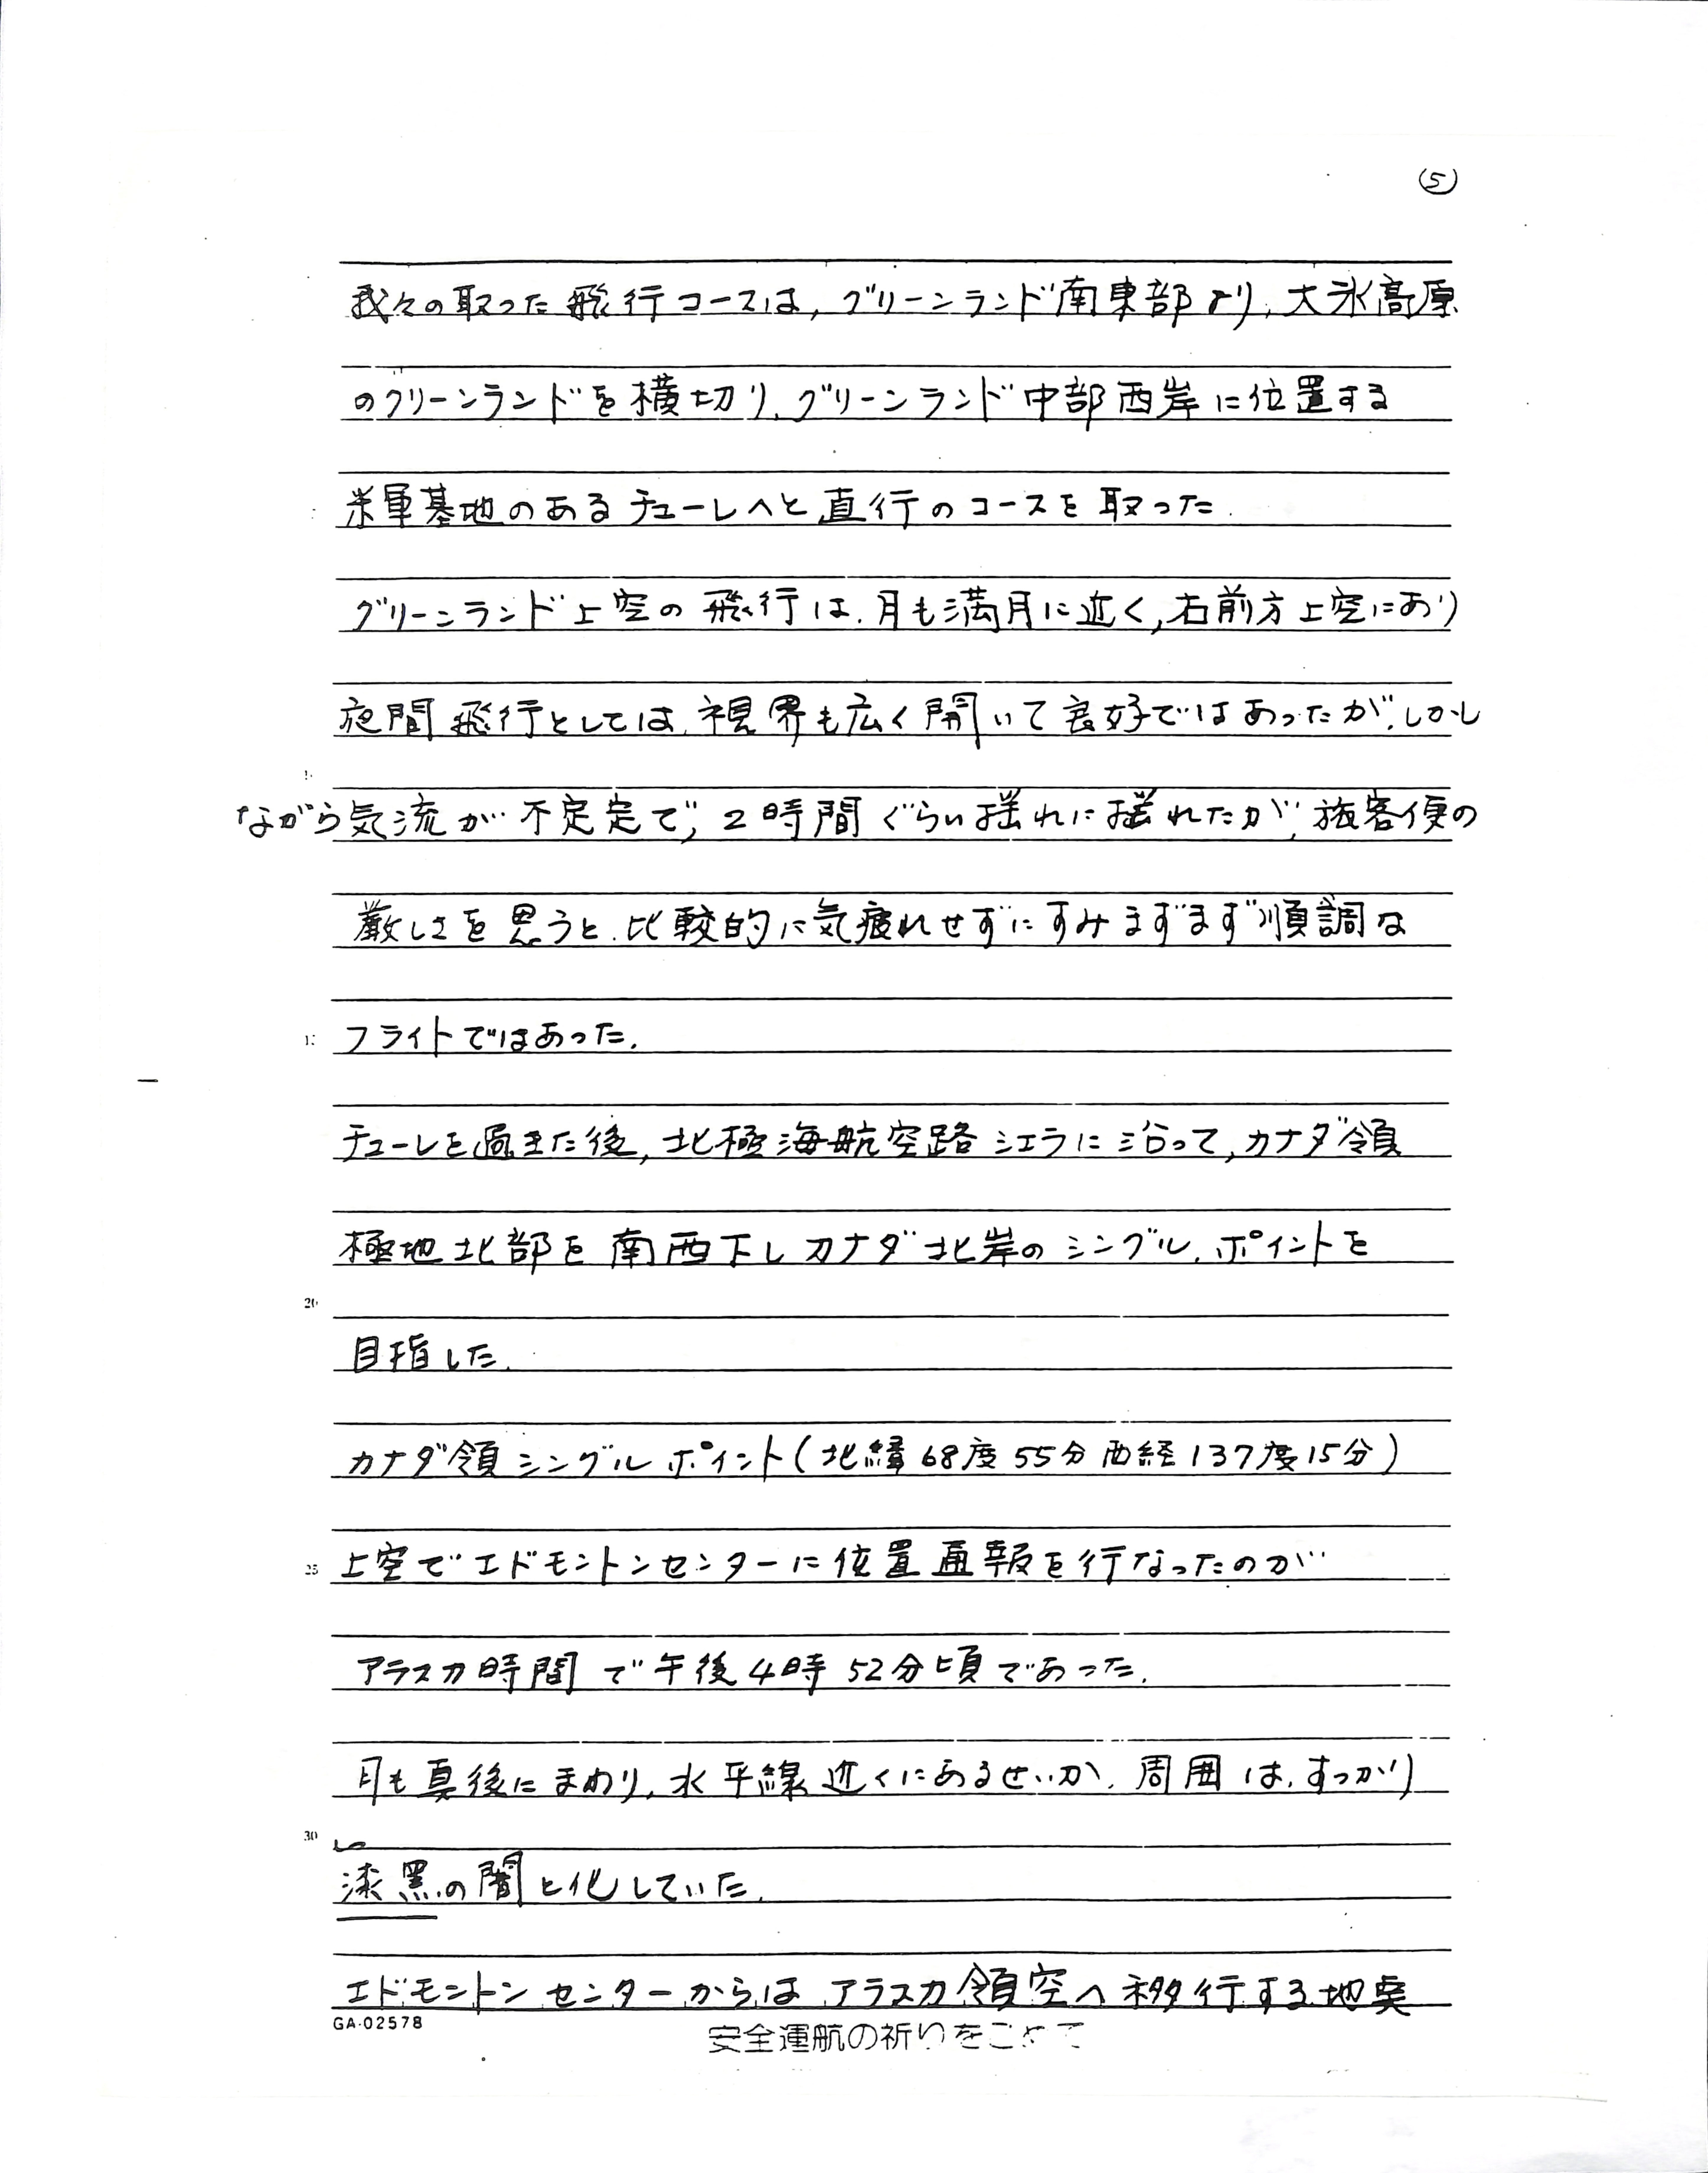 ⑤
我々の取った飛行コースは,グリーンランド南東部より,大氷高原
のグリーンランドを横切り,グリーンランド中部西岸に位置する
米軍基地のあるチューレへと直行のコースを取った.
グリーンランド上空の飛行は.月も満月に近く,右前方上空にあり
夜間飛行としては,視界も広く開いて良好ではあったが,しかし
ながら気流が不定定で,2時間ぐらい揺れに揺れたが,旅客便の
厳しさを思うと.比較的に気疲れせずにすみまずまず順調な
フライトではあった.
チューレを過ぎた後,北極海航空路シエラに沿って,カナダ領
極地北部を南西下しカナダ北岸のシングル.ポイントを
目指した.
カナダ領シングルポイント(北緯68度55分西経137度15分)
上空でエドモントンセンターに位置通報を行なったのが
アラスカ時間で午後4時52分頃であった.
月も真後にまわり,水平線近くにあるせいか,周囲は,すっかり
漆黒の闇と化していた.
エドモントンセンターからはアラスカ領空へ移行する地奌
GA-02578
安全運航の祈りをこめて